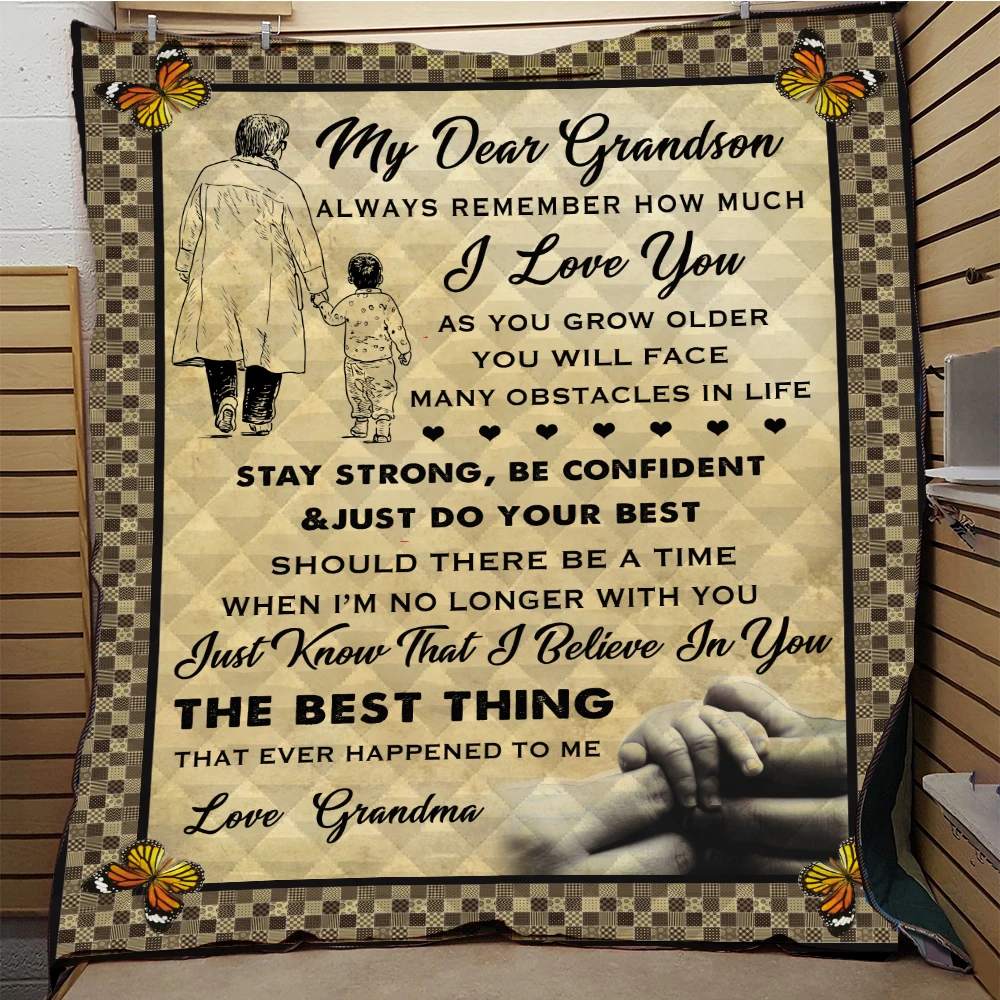 My Dear Grandson
ALWAYS REMEMBER HOW MUCH
I Love You
AS YOU GROW OLDER
YOU WILL FACE
MANY OBSTACLES IN LIFE
STAY STRONG, BE CONFIDENT
&JUST DO YOUR BEST
SHOULD THERE BE A TIME
WHEN I'M NO LONGER WITH YOU
Just Know That I Believe In You
THE BEST THING
THAT EVER HAPPENED TO ME
Love Grandma